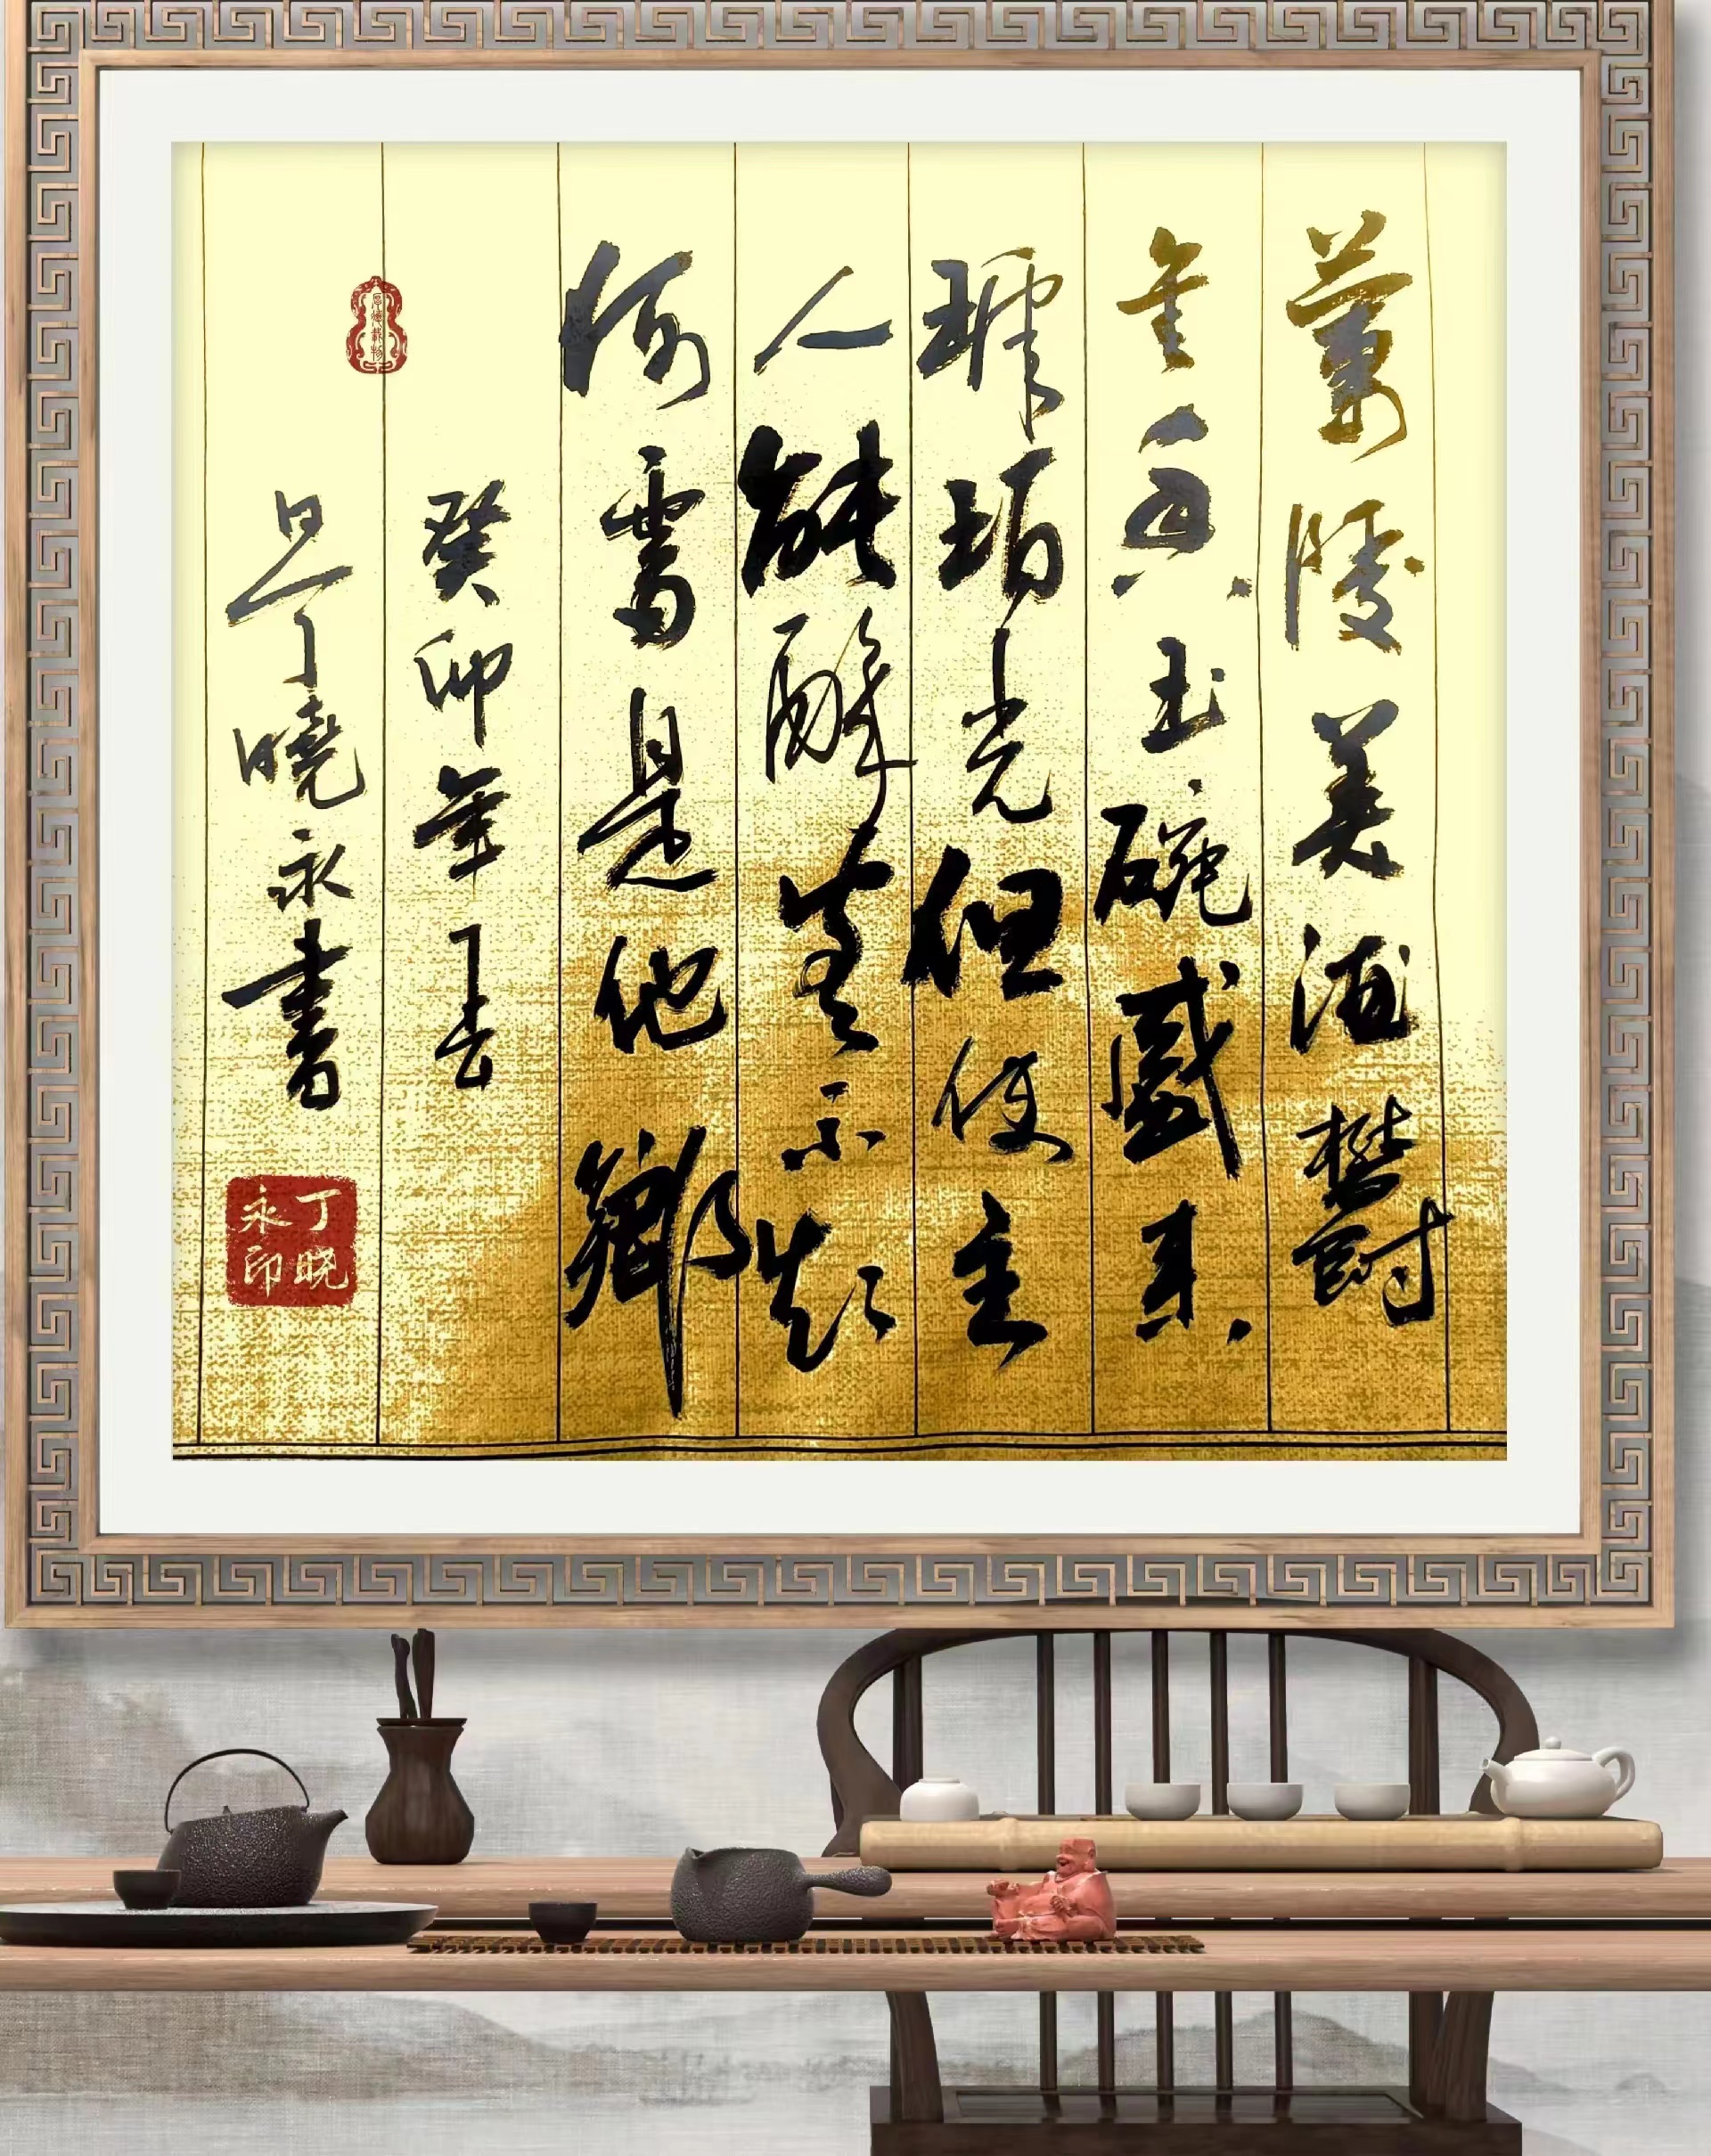 蘭陵美酒鬱
金香玉碗盛来
琥珀光但使主
人能醉客不知
何處是他鄉
厚德載物
癸卯年春
丁曉永書
丁晓
永印